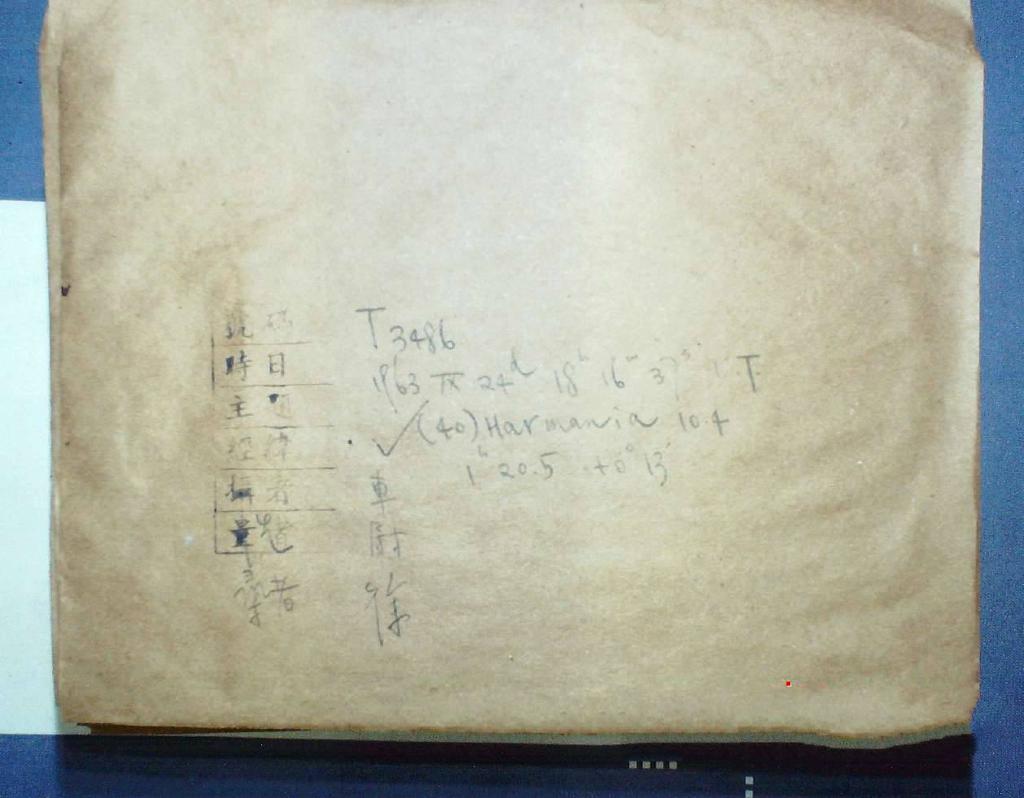 號碼 T3486
時日 1963 IX 24d 18h 16m T
主 ✓(40) Harmania 10.4
經緯 1h 20.5 +0° 13'
者 車
量 尉
者 徐